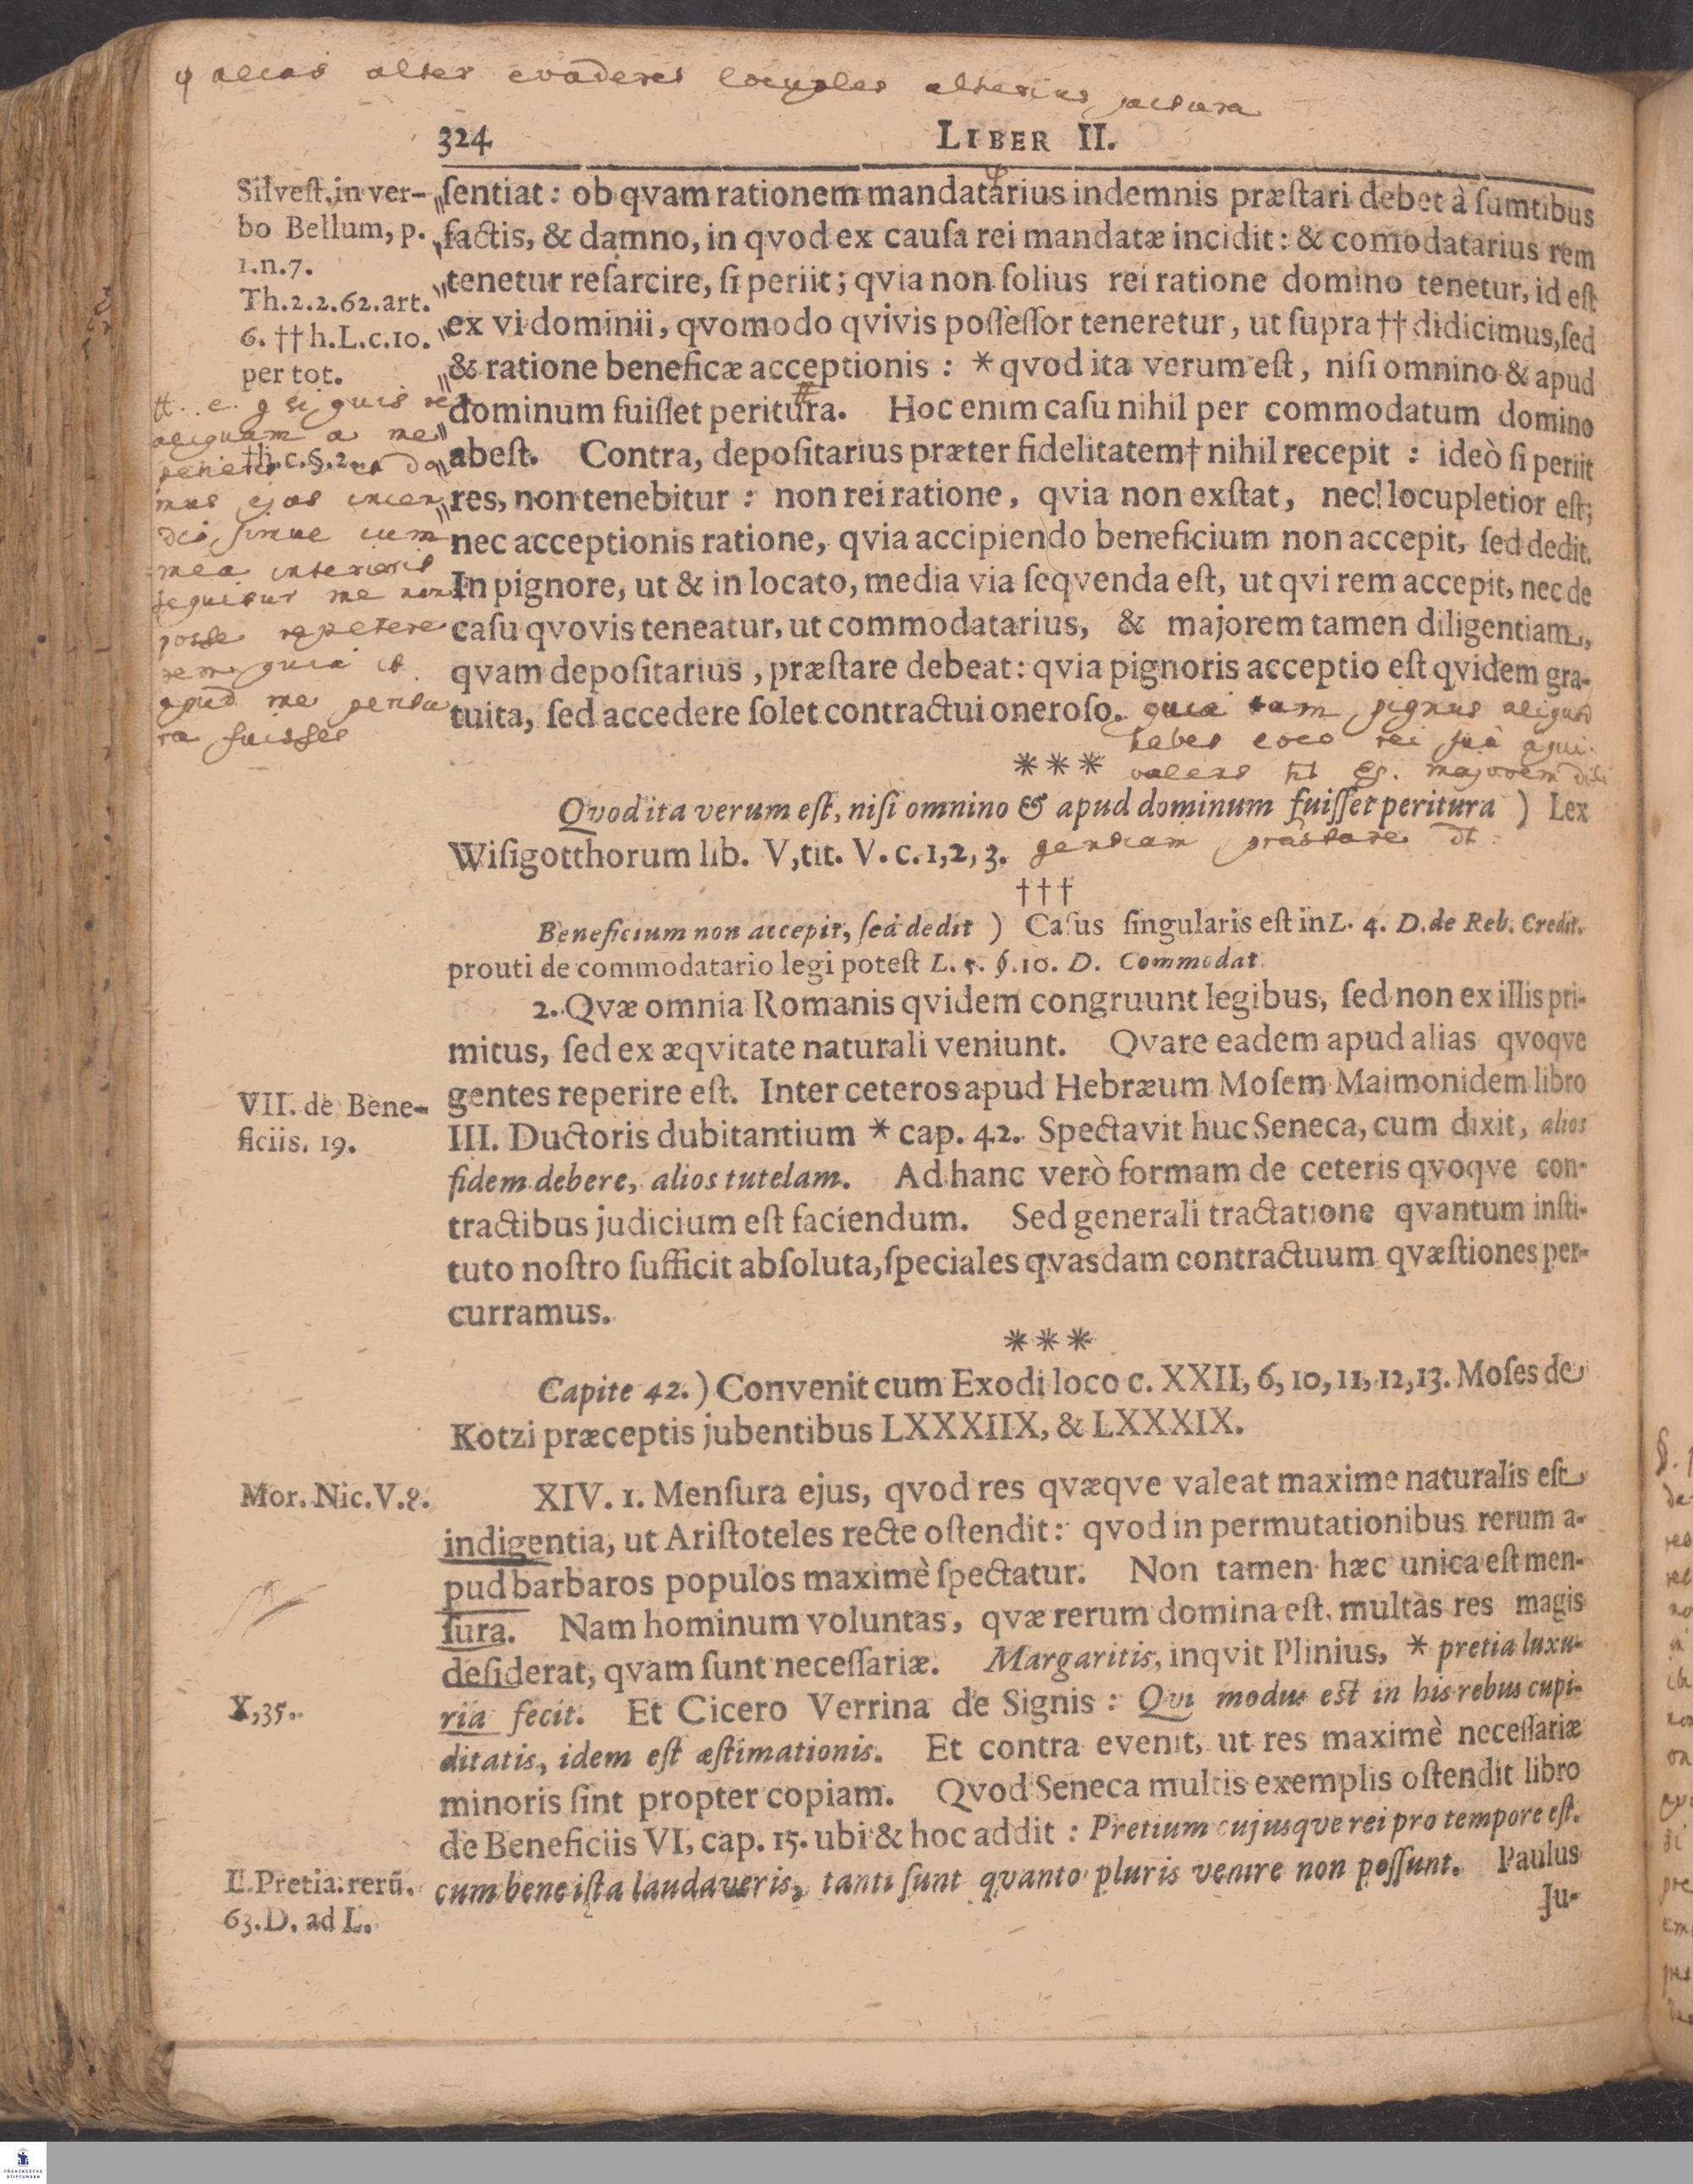 φ alias alter evaderet locuples alterius jactura
324 LIBER II.
Silveſt.in ver-
bo Bellum, p.
1.n.7.
Th.2.2.62.art.
6. ††h.L.c.10.
per tot.
#. e. g si quis re
aliquam a me
†h.c.§.2.
mus ejus incen
dio simul cum
mea interierit
sequitur me non
posse repetere
rem, quia et
apud me peritu
ra fuisset
ſentiat: ob qvam rationem mandatarius indemnis præſtari debet à ſumtibus
factis, & damno, in qvod ex cauſa rei mandatæ incidit: & comodatarius rem
tenetur reſarcire, ſi periit; qvia non ſolius rei ratione domino tenetur, id eſt
ex vi dominii, qvomodo qvivis poſſeſſor teneretur, ut ſupra†† didicimus,ſed
& ratione beneficæ acceptionis : * qvod ita verum eſt, niſi omnino & apud
dominum fuiſſet peritura. Hoc enim caſu nihil per commodatum domino
abeſt. Contra, depoſitarius præter fidelitatem† nihil recepit : ideò ſi periit
res, non tenebitur : non rei ratione, qvia non exſtat, nec locupletior eſt;
nec acceptionis ratione, qvia accipiendo beneficium non accepit, ſed dedit.
In pignore, ut & in locato, media via ſeqvenda eſt, ut qvi rem accepit, nec de
caſu qvovis teneatur, ut commodatarius, & majorem tamen diligentiam,
qvam depoſitarius , præſtare debeat: qvia pignoris acceptio eſt qvidem gra-
tuita, ſed accedere ſolet contractui oneroſo. quia tam pignus aliquid
habet loco rei suâ aqui.
*** valens majorem dili
Qvod ita verum eſt, niſi omnino & apud dominum fuiſſet peritura ) Lex
Wiſigotthorum lib. V,tit. V. c. 1,2, 3. gentiam præstare
†††
Beneficium non accepit, ſed dedit ) Caſus ſingularis eſt in L. 4. D.de Reb. Credit.
prouti de commodatario legi poteſt L. 5. §.10. D. Commodat.
2. Qvæ omnia Romanis qvidem congruunt legibus, ſed non ex illis pri-
mitus, ſed ex æqvitate naturali veniunt. Qvare eadem apud alias qvoqve
gentes reperire eſt. Inter ceteros apud Hebræum Moſem Maimonidem libro
III. Ductoris dubitantium * cap. 42. Spectavit huc Seneca, cum dixit, alios
fidem debere, alios tutelam. Ad hanc verò formam de ceteris qvoqve con-
tractibus judicium eſt faciendum. Sed generali tractatione qvantum inſti-
tuto noſtro ſufficit abſoluta,ſpeciales qvasdam contractuum qvæſtiones per-
curramus.
VII. de Bene-
ficiis. 19.
***
Capite 42.) Convenit cum Exodi loco c. XXII, 6, 10, 11, 12,13. Moſes de
Kotzi præceptis jubentibus LXXXIIX, & LXXXIX.
Mor. Nic.V.8.
XIV. 1. Menſura ejus, qvod res qvæqve valeat maxime naturalis eſt
indigentia, ut Ariſtoteles recte oſtendit: qvod in permutationibus rerum a-
pud barbaros populos maximè ſpectatur. Non tamen hæc unica eſt men-
ſura. Nam hominum voluntas, qvæ rerum domina eſt, multàs res magis
deſiderat, qvam ſunt neceſſariæ. Margaritis, inqvit Plinius, * pretia luxu-
ria fecit. Et Cicero Verrina de Signis : Qvi modus eſt in his rebus cupi-
ditatis, idem eſt æſtimationis. Et contra evenit, ut res maximè neceſſariæ
minoris ſint propter copiam. Qvod Seneca multis exemplis oſtendit libro
de Beneficiis VI, cap. 15. ubi & hoc addit : Pretium cujusqve rei pro tempore eſt.
cum bene iſta laudaveris, tanti ſunt qvanto pluris venire non poſſunt. Paulus
X,35.
L. Pretia.rerũ.
63.D. ad L.
Ju-
FRANCKESCHE
STIFTUNGEN